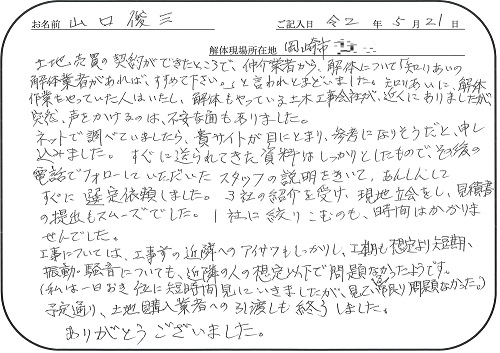 お名前 山口俊三 ご記入日 令2年5月21日
解体現場所在地 岡崎市
土地売買の契約ができたところで、仲介業者から、解体について「知りあいの
解体業者があれば、すすめて下さい。」と言われとまどいました。知りあいに、解体
作業をやっていた人はいたし、解体もやっている土木工事会社が、近くにありましたが
突然、声をかけるのは、不安な面もありました。
ネットで調べていましたら、貴サイトが目にとまり、参考になりそうだと、申し
込みました。すぐに送られてきた資料はしっかりとしたもので、その後の
電話でフォローしていただいたスタッフの説明をきいて、あんしんして
すぐに選定依頼しました。3社の紹介を受け、現地立会をし、見積書
の提出もスムーズでした。1社に絞りこむのも、時間はかかりま
せんでした。
工事については、工事前の近隣へのアイサツもしっかりし、工期も想定より短期、
振動・騒音についても、近隣の人の想定以下で問題なかったようです。
(私は一日おき位に短時間見にいきましたが、見ている限り問題なかった。)
予定通り、土地購入業者への引渡しも終了しました。
ありがとうございました。